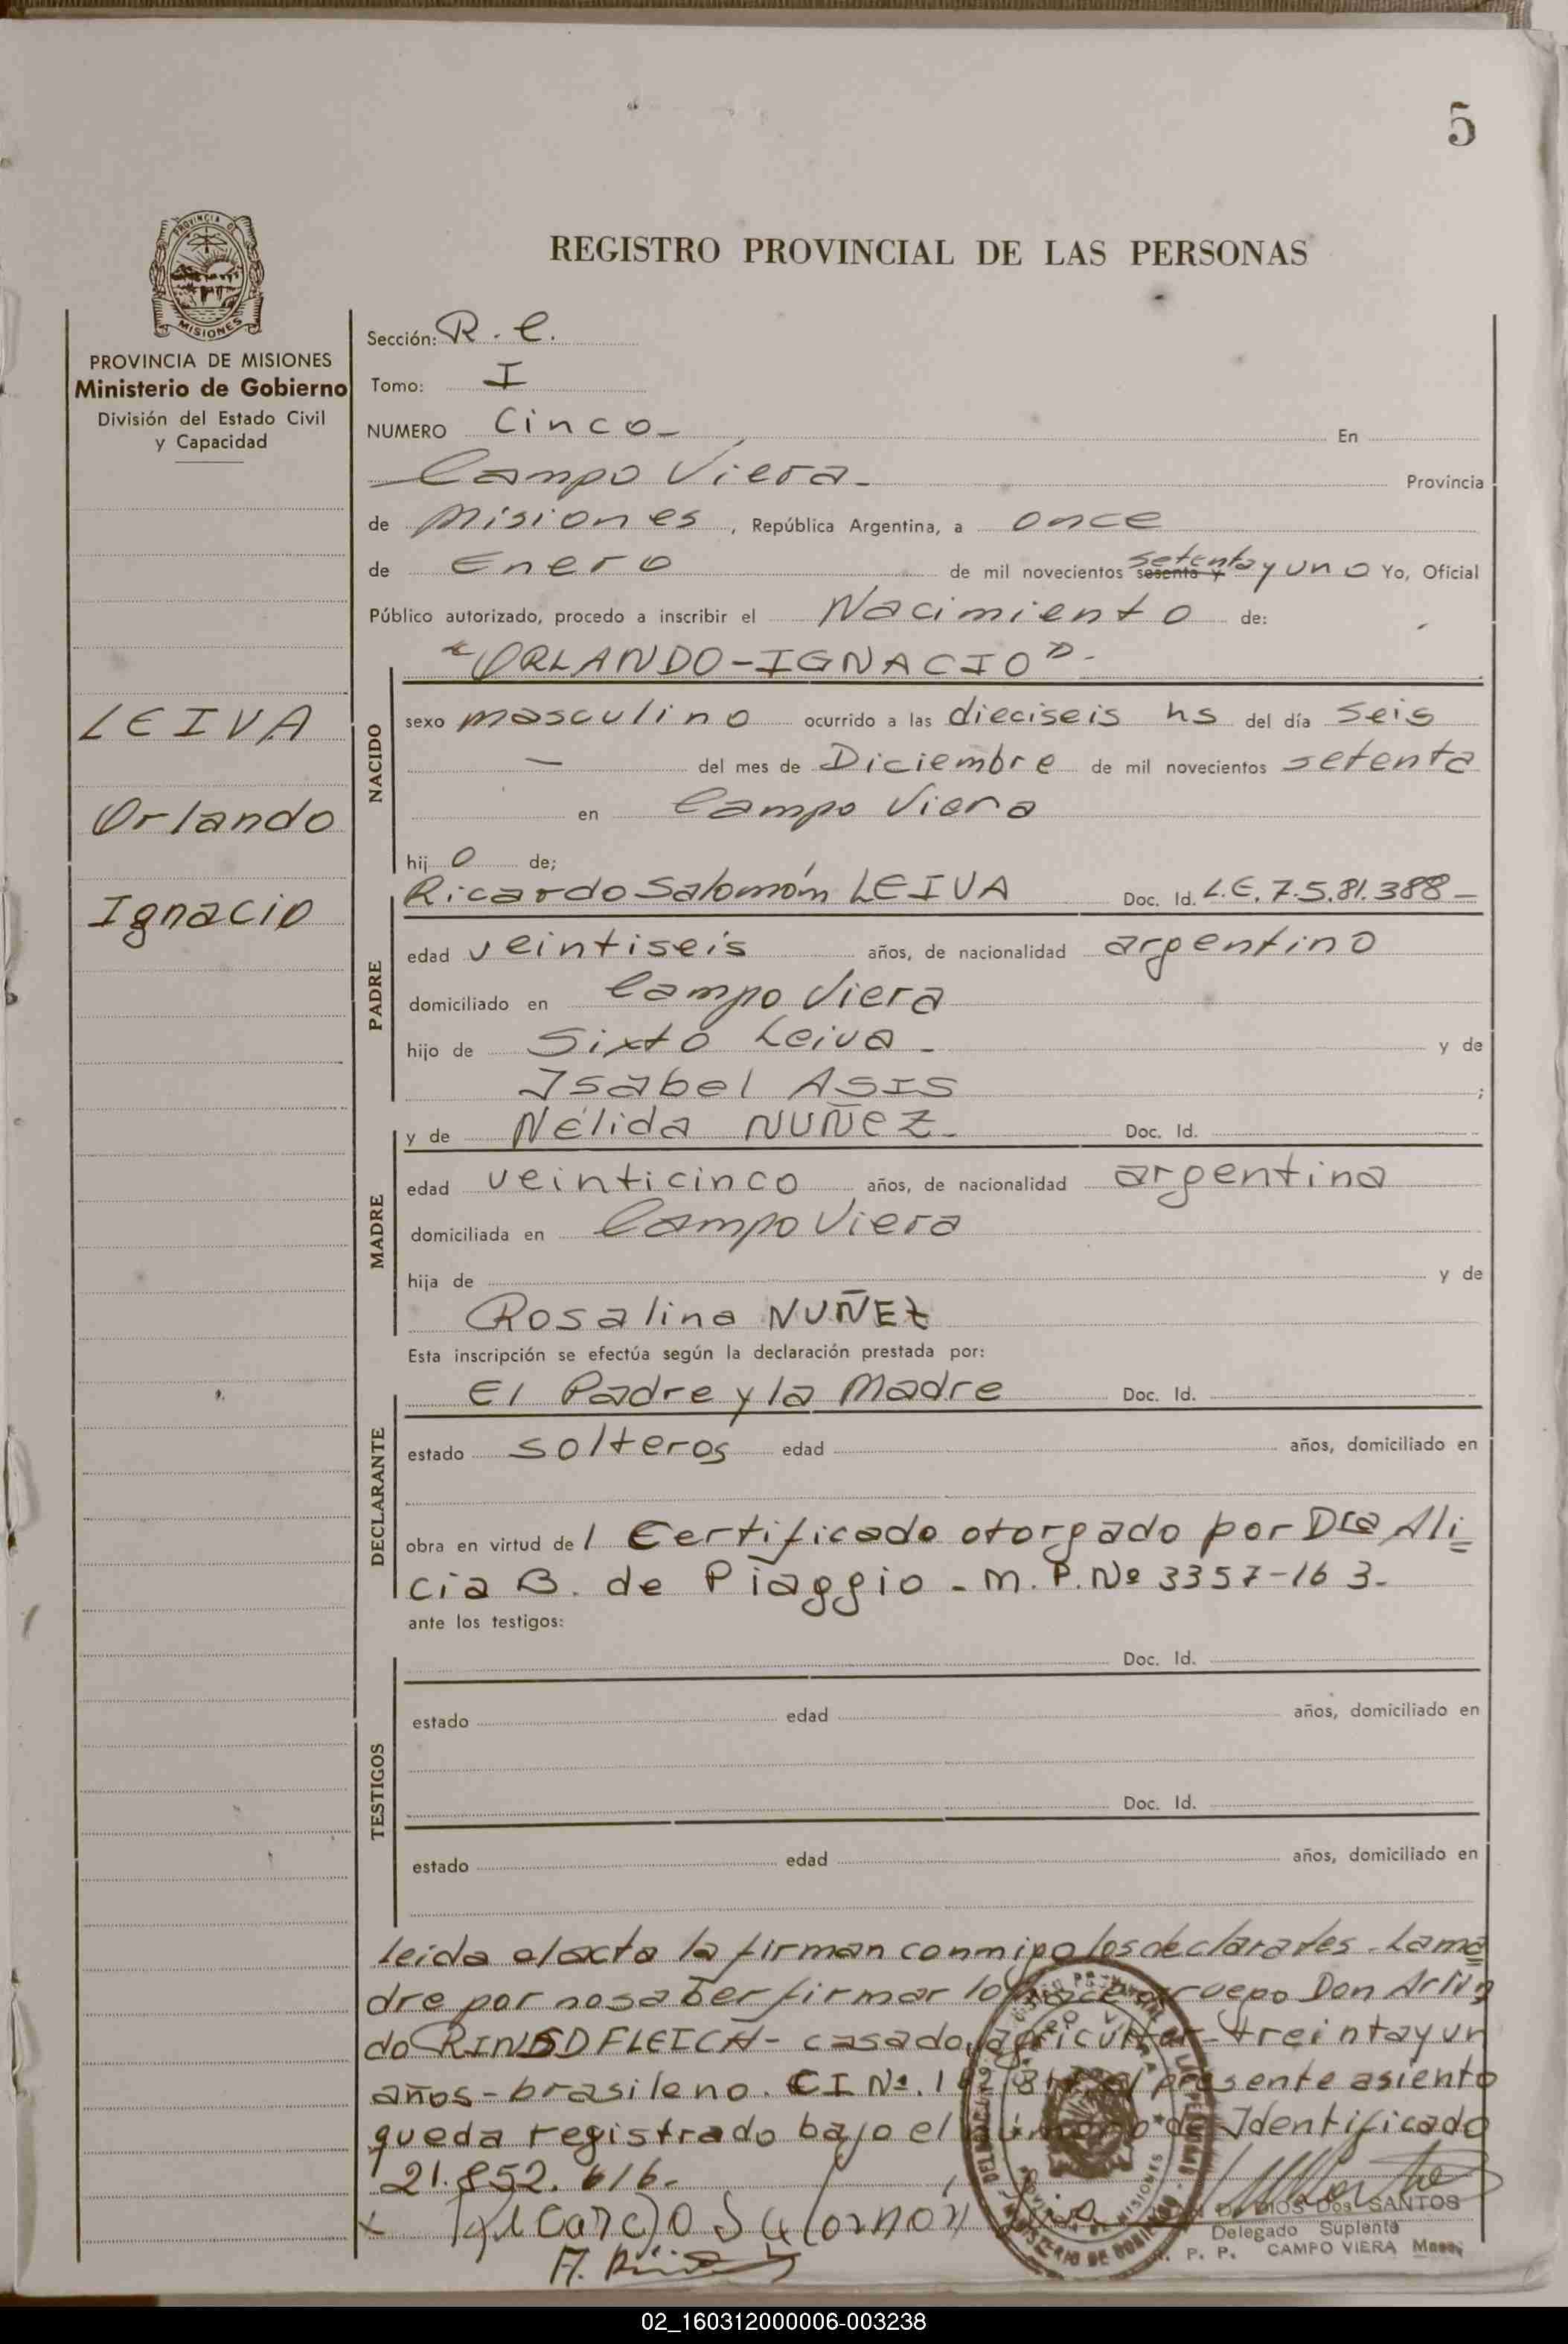 5
REGISTRO PROVINCIAL DE LAS PERSONAS
PROVINCIA DE MISIONES
Ministerio de Gobierno
División del Estado Civil
y Capacidad
LEIVA
Orlando
Ignacio
Sección: R. C.
Tomo: I
NUMERO Cinco- En
Campo Viera- Provincia
de Misiones, República Argentina, a once
de Enero de mil novecientos sesenta y setenta y uno Yo, Oficial
Público autorizado, procedo a inscribir el Nacimiento de:
"ORLANDO-IGNACIO"-
NACIDO
sexo masculino ocurrido a las dieciseis hs del día seis
— del mes de Diciembre de mil novecientos setenta
en Campo Viera
hij o de;
PADRE
Ricardo Salomón LEIVA Doc. Id. L.E. 7.5.81.388-
edad veintiseis años, de nacionalidad argentino
domiciliado en Campo Viera
hijo de Sixto Leiva- y de
Isabel ASIS ;
MADRE
y de Nélida NUÑEZ- Doc. Id.
edad veinticinco años, de nacionalidad argentina
domiciliada en Campo Viera
hija de y de
Rosalina NUÑEZ
Esta inscripción se efectúa según la declaración prestada por:
DECLARANTE
El Padre y la Madre Doc. Id.
estado solteros edad años, domiciliado en
obra en virtud de l Certificado otorgado por Dra Ali=
cia B. de Piaggio - M. P. Nº 3357-163-
ante los testigos:
TESTIGOS
Doc. Id.
estado edad años, domiciliado en
Doc. Id.
estado edad años, domiciliado en
leída el acta la firman conmigo los declarantes. La ma
dre por no saber firmar lo hace a ruego Don Arlin
do casado, agricultor- treinta y un
años- brasileno. CI Nº. el presente asiento
queda registrado bajo el número de Identificado
21.852.616-
x Ricardo Salomón Leiva
A.
DE DIOS Dos SANTOS
Delegado Suplente
R. P. P. CAMPO VIERA Mnes.
02_160312000006-003238